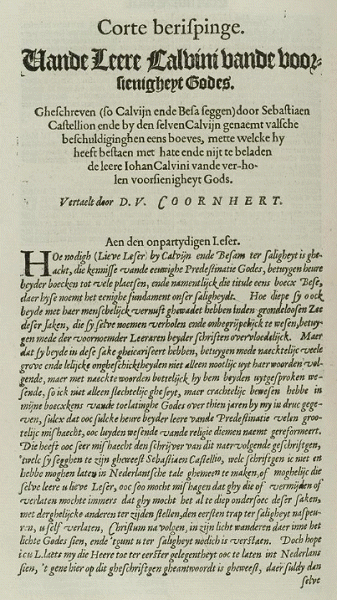 Corte berispinge.
Vande Leere Calvini vande voor-
sienigheyt Godes.
Gheschreven (so Calvijn ende Besa seggen) door Sebastiaen
Castellion ende by den selven Calvijn genaemt valsche
beschuldiginghen eens boeves, mette welcke hy
heeft bestaen met hate ende nijt te beladen
de leere Iohan Calvini vande ver-ho-
len voorsienigheyt Gods.
Vertaelt door D. V. COORNHERT.
Aen den onpartydigen Leser.
HOe nodigh (Lieve Leser) by Calvijn ende Besam ter saligheyt is ghe-
acht, die kennisse vande eeuwighe Predestinatie Godes, betuygen heure
beyder boecken tot vele plaetsen, ende namentlijck die titule eens boecx Bese,
daer hyse noemt het eenighe fundament onser saligheyde. Hoe diepe sy oock
beyde met haer menschelijck vernuft ghewadet hebben inden grondeloosen Zee
deser saken, die sy selve noemen verholen ende onbegrijpelijck te wesen, betuy-
gen mede der voornoemder Leeraren beyder schriften overvloedelijck. Maer
dat sy beyde in dese sake gheïaerseert hebben, betuygen mede naecktelijc veele
grove ende lelijcke ongheschicktheyden niet alleen moelijc uyt haer woorden vol-
gende, maer met naeckte woorden bottelijck by hem beyden uytgesproken we-
sende, so ick niet alleen slechtelijc ghesyt, maer crachtelijc bewesen hebbe in
mijne boecxkens vande toelatinghe Godes over thien jaren by my in druc gege-
ven, sulcx dat ooc sulcke heure beyder leere vande Predestinatie velen groo-
telijc mishaecht, ooc luyden wesende vande religie diemen naemt gereformeert.
Die heeft ooc seer mishaecht den schrijver van dit naer volgende geschriften,
twelc sy segghen te zijn gheweest Sebastiaen Castellio, welc schriften ic niet en
hebbe moghen laten in Nederlantsche tale ghemeen te maken, of moghelijc die
selve leere u lieve Leser, ooc soo mocht mishagen dat ghy die of vermijden of
verlaten mochte immers dat ghy mocht het al te diep ondersoec deser saken,
met derghelijcke anderen ter zijden stellen, den eersten trap ter saligheyt naspeu-
ren, u self verlaten, Christum na volgen, in zijn licht wanderen daer inne het
lichte Godes sien, ende 'tgunt u ter saligheyt nodich is verstaen. Doch hope
icu L. laets my die Heere tot ter eerster gelegentheyt ooc te laten int Nederlans
sien, 't gene hier op dit gheschriftgen gheantwoordt is gheweest, daer suldy dan
selve